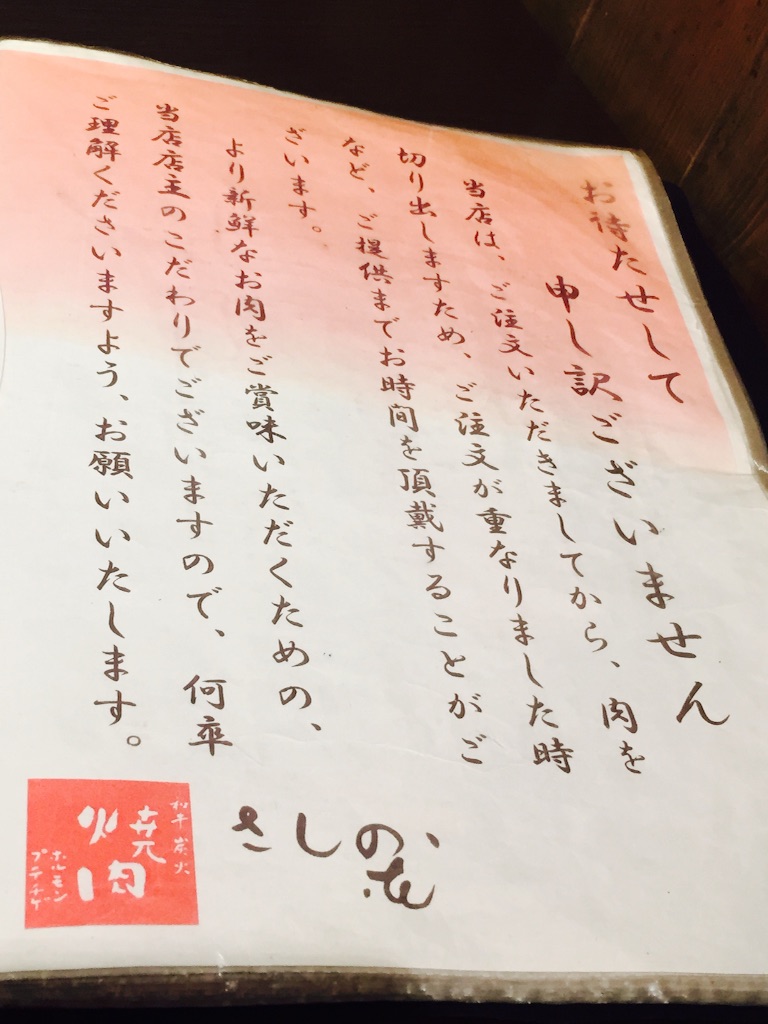 お待たせして
申し訳ございません
当店は、ご注文いただきましてから、肉を
切り出しますため、ご注文が重なりました時
など、ご提供までお時間を頂戴することがご
ざいます。
より新鮮なお肉をご賞味いただくための、
当店店主のこだわりでございますので、何卒
ご理解くださいますよう、お願いいたします。
和牛炭火
焼肉
ホルモン
プテチゲ